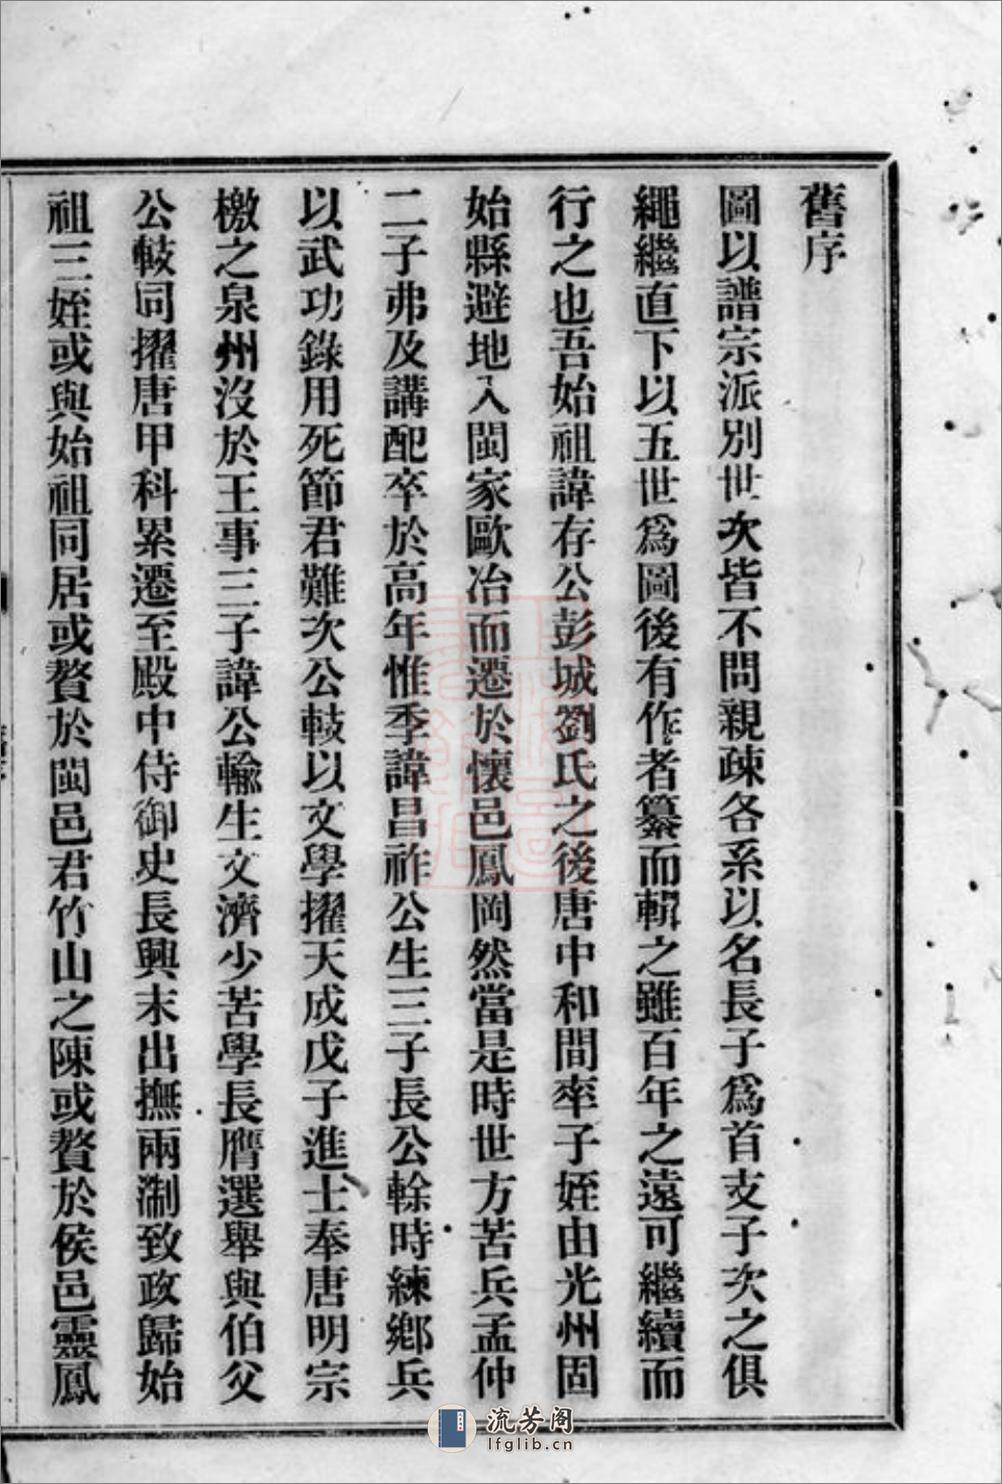 舊序
圖以譜宗派別世次皆不問親疎各系以名長子爲首支子次之俱
繩繼直下以五世爲圖後有作者纂而輯之雖百年之遠可繼續而
行之也吾始祖諱存公彭城劉氏之後唐中和間率子姪由光州固
始縣避地入閩家歐冶而遷於懷邑鳳岡然當是時世方苦兵孟仲
二子弗及講配卒於高年惟季諱昌祚公生三子長公幹時練鄉兵
以武功錄用死節君難次公䡋以文學擢天成戊子進士奉唐明宗
檄之泉州沒於王事三子諱公輸生文濟少苦學長膺選舉與伯父
公䡋同擢唐甲科累遷至殿中侍御史長興末出撫兩淛致政歸始
祖三姪或與始祖同居或贅於閩邑君竹山之陳或贅於侯邑靈鳳
流芳阁
lfglib.cn